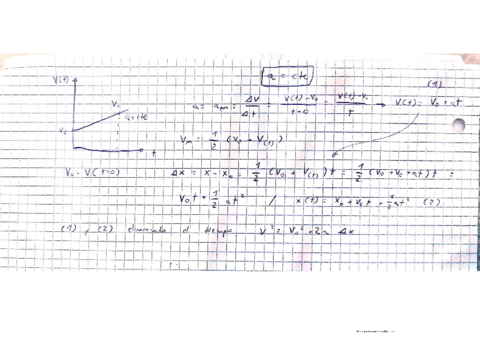 a = cte
V(t)
V₀
a = cte
t
a = aₘ = ΔV/Δt = (V(t) - V₀)/(t - 0) = (V(t) - V₀)/t → V(t) = V₀ + at (1)
Vₘ = 1/2 (V₀ + V(t))
V₀ = V(t=0) Δx = x - x₀ = 1/2 (V₀ + V(t)) t = 1/2 (V₀ + V₀ + at) t =
V₀t + 1/2 at² / x(t) = x₀ + V₀t + 1/2 at² (2)
(1), (2) eliminando el tiempo V² = V₀² + 2a Δx